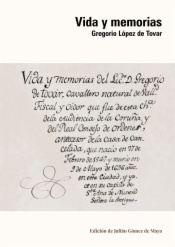 Vida y memorias
Gregorio López de Tovar
Vida y memorias del Lic.do D. Gregorio
de Tovar, cavallero natural de Vall.d
Fiscal y Oidor que fue de esta
Audiencia de la Coruña y
del Real Consejo de Ordenes,
antecesor de la Casa de Can-
celada, que nació en 17 de
Febrero de 1547 y murió en
2 de Mayo de 1636 años,
en esta Ciudad, y ya-
ce en su Capilla de
Sta. Ana de Nuestra
Señora la Antigua.
Edición de Julián Gómez de Maya